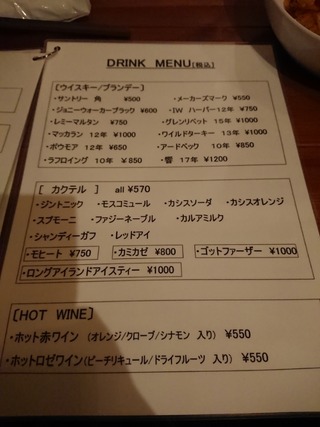 DRINK MENU[税込]
[ウイスキー/ブランデー]
・サントリー 角 ¥500 ・メーカーズマーク ¥550
・ジョニーウォーカーブラック ¥600 ・IW ハーパー12年 ¥750
・レミーマルタン ¥750 ・グレンリベット 15年 ¥1000
・マッカラン 12年 ¥1000 ・ワイルドターキー 13年 ¥1000
・ボウモア 12年 ¥650 ・アードベック 10年 ¥850
・ラフロイング 10年 ¥850 ・響 17年 ¥1200
[ カクテル ] all ¥570
・ジントニック ・モスコミュール ・カシスソーダ ・カシスオレンジ
・スプモーニ ・ファジーネーブル ・カルアミルク
・シャンディーガフ ・レッドアイ
・モヒート ¥750 ・カミカゼ ¥800 ・ゴットファーザー ¥1000
・ロングアイランドアイスティー ¥1000
[HOT WINE]
・ホット赤ワイン (オレンジ/クローブ/シナモン 入り) ¥550
・ホットロゼワイン(ピーチリキュール/ドライフルーツ 入り) ¥550